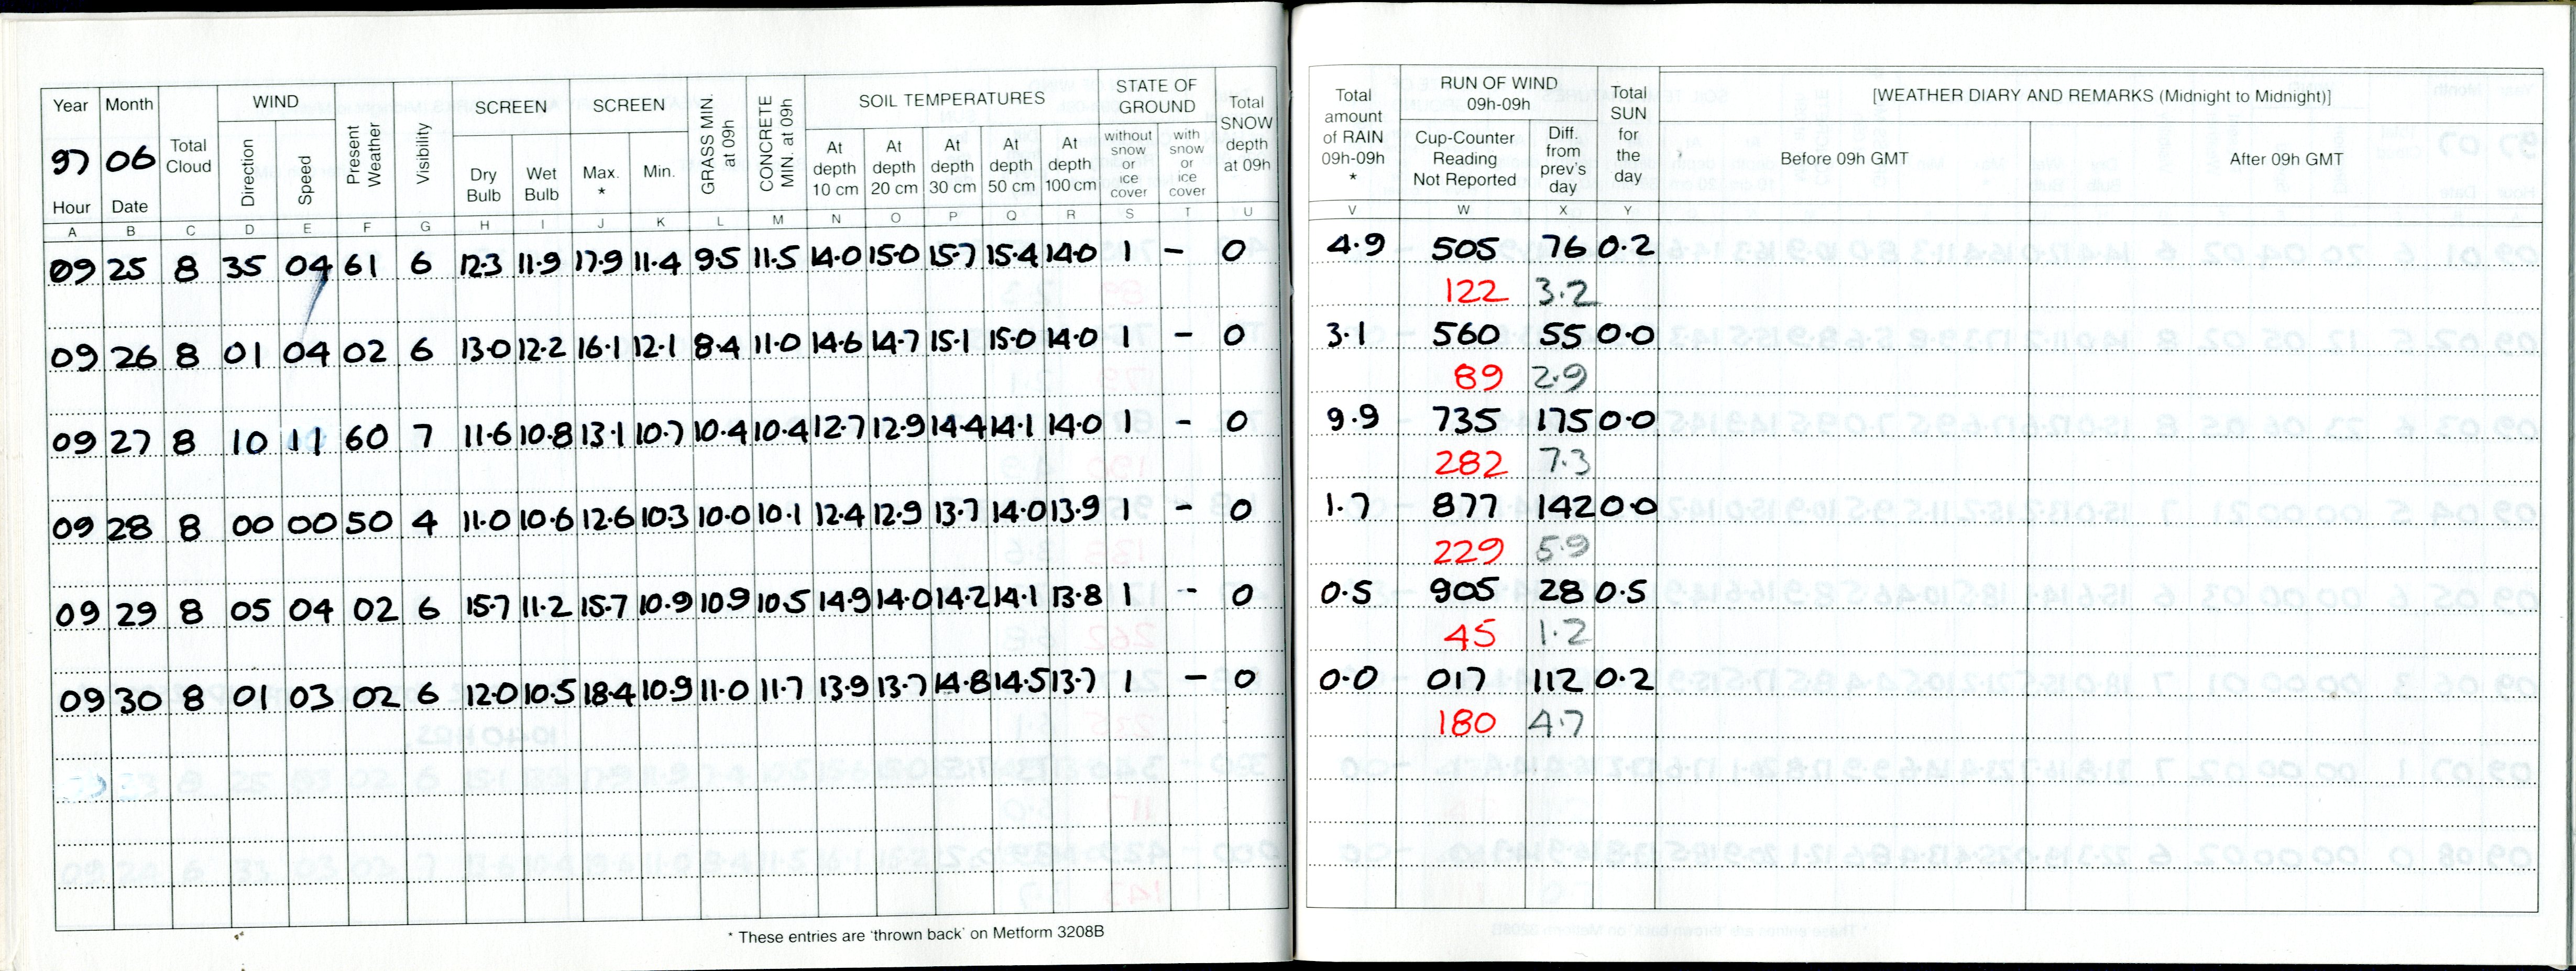 Year Month WIND SCREEN SCREEN SOIL TEMPERATURES STATE OF GROUND
97 06 Total Cloud Direction Speed Present Weather Visibility Dry Bulb Wet Bulb Max. * Min. GRASS MIN. at 09h CONCRETE MIN. at 09h At depth 10 cm At depth 20 cm At depth 30 cm At depth 50 cm At depth 100 cm without snow or ice cover with snow or ice cover Total SNOW depth at 09h
Hour Date
A B C D E F G H I J K L M N O P Q R S T U
09 25 8 35 04 61 6 12.3 11.9 17.9 11.4 9.5 11.5 14.0 15.0 15.7 15.4 14.0 1 – 0
09 26 8 01 04 02 6 13.0 12.2 16.1 12.1 8.4 11.0 14.6 14.7 15.1 15.0 14.0 1 – 0
09 27 8 10 11 60 7 11.6 10.8 13.1 10.7 10.4 10.4 12.7 12.9 14.4 14.1 14.0 1 – 0
09 28 8 00 00 50 4 11.0 10.6 12.6 10.3 10.0 10.1 12.4 12.9 13.7 14.0 13.9 1 – 0
09 29 8 05 04 02 6 15.7 11.2 15.7 10.9 10.9 10.5 14.9 14.0 14.2 14.1 13.8 1 – 0
09 30 8 01 03 02 6 12.0 10.5 18.4 10.9 11.0 11.7 13.9 13.7 14.8 14.5 13.7 1 – 0
* These entries are ‘thrown back’ on Metform 3208B
Total amount of RAIN 09h-09h * RUN OF WIND 09h-09h Total SUN for the day [WEATHER DIARY AND REMARKS (Midnight to Midnight)]
Cup-Counter Reading Not Reported Diff. from prev's day Before 09h GMT After 09h GMT
V W X Y
4.9 505 76 0.2
122 3.2
3.1 560 55 0.0
89 2.9
9.9 735 175 0.0
282 7.3
1.7 877 142 0.0
229 5.9
0.5 905 28 0.5
45 1.2
0.0 017 112 0.2
180 4.7